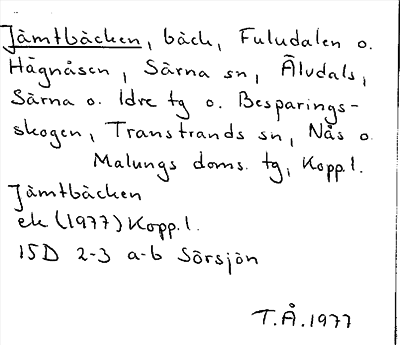 Jämtbäcken, bäck, Fuludalen o.
Hägnåsen, Särna sn, Älvdals,
Särna o. Idre tg o. Besparings-
skogen, Transtrands sn, Nås o.
Malungs doms. tg, Kopp.l.
Jämtbäcken
ek (1977) Kopp.l.
15D 2-3 a-b Sörsjön
T.Å. 1977